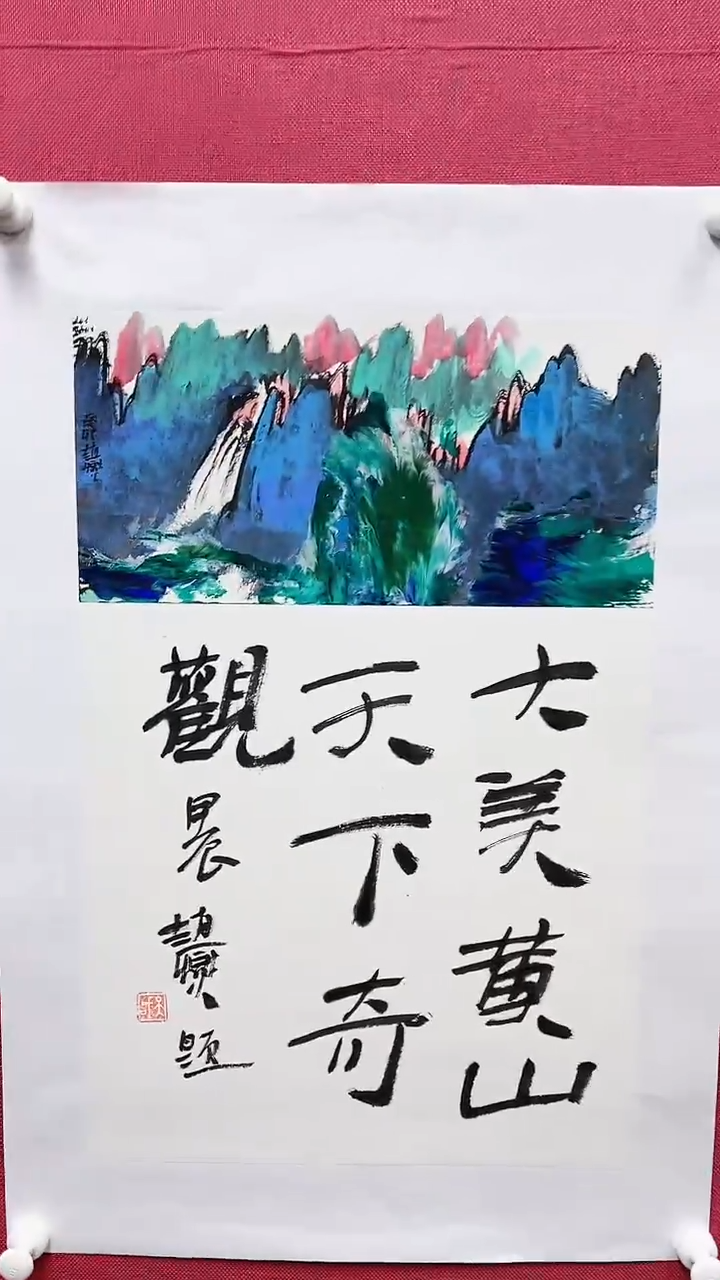 大美黄山
天下奇
觀
晨
題